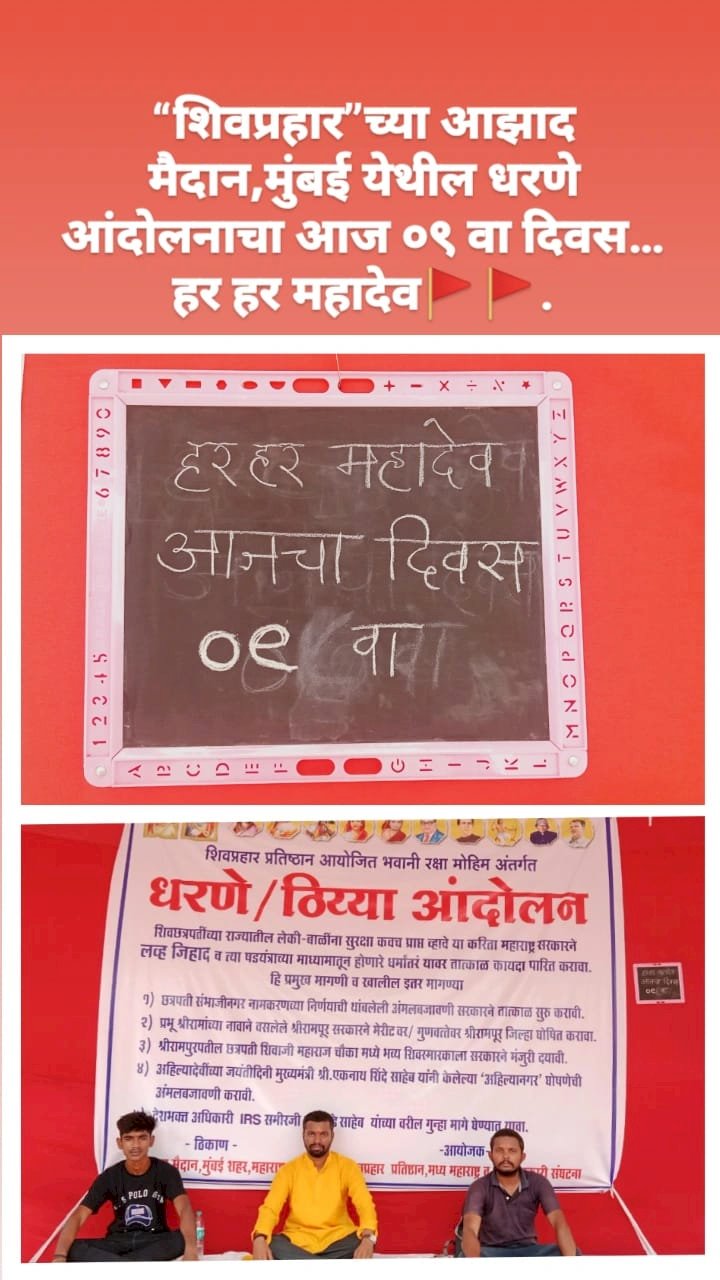 “शिवप्रहार”च्या आझाद
मैदान,मुंबई येथील धरणे
आंदोलनाचा आज ०९ वा दिवस...
हर हर महादेव🚩🚩.
6 7 8 9 0
+ − × ÷
1 2 3 4 5
A B C D E F G H I J K L
M N O P Q R S T U V W X Y Z
हर हर महादेव
आजचा दिवस
०९ वा
शिवप्रहार प्रतिष्ठान आयोजित भवानी रक्षा मोहिम अंतर्गत
धरणे/ठिय्या आंदोलन
शिवछत्रपतींच्या राज्यातील लेकी-बाळींना सुरक्षा कवच प्राप्त व्हावे या करिता महाराष्ट्र सरकारने
लव्ह जिहाद व त्या षडयंत्राच्या माध्यमातून होणारे धर्मांतरं यावर तात्काळ कायदा पारित करावा.
हि प्रमुख मागणी व खालील इतर मागण्या
१) छत्रपती संभाजीनगर नामकरणच्या निर्णयाची थांबलेली अंमलबजावणी सरकारने तात्काळ सुरु करावी.
२) प्रभू श्रीरामांच्या नावाने वसलेले श्रीरामपूर सरकारने मेरीट वर/ गुणवत्तेवर श्रीरामपूर जिल्हा घोषित करावा.
३) श्रीरामपुरातील छत्रपती शिवाजी महाराज चौका मध्ये भव्य शिवस्मारकाला सरकारने मंजुरी दयावी.
४) अहिल्यादेवींच्या जयंतीदिनी मुख्यमंत्री श्री.एकनाथ शिंदे साहेब यांनी केलेल्या ‘अहिल्यानगर’ घोषणेची
अंमलबजावणी करावी.
देशभक्त अधिकारी IRS समीरजी साहेब यांच्या वरील गुन्हा मागे घेण्यात यावा.
- ठिकाण -
-आयोजक-
मैदान,मुंबई शहर,
प्रतिष्ठान,मध्य महाराष्ट्र व
संघटना
हर हर महादेव
आजचा दिवस
०९ वा
U.S. POLO